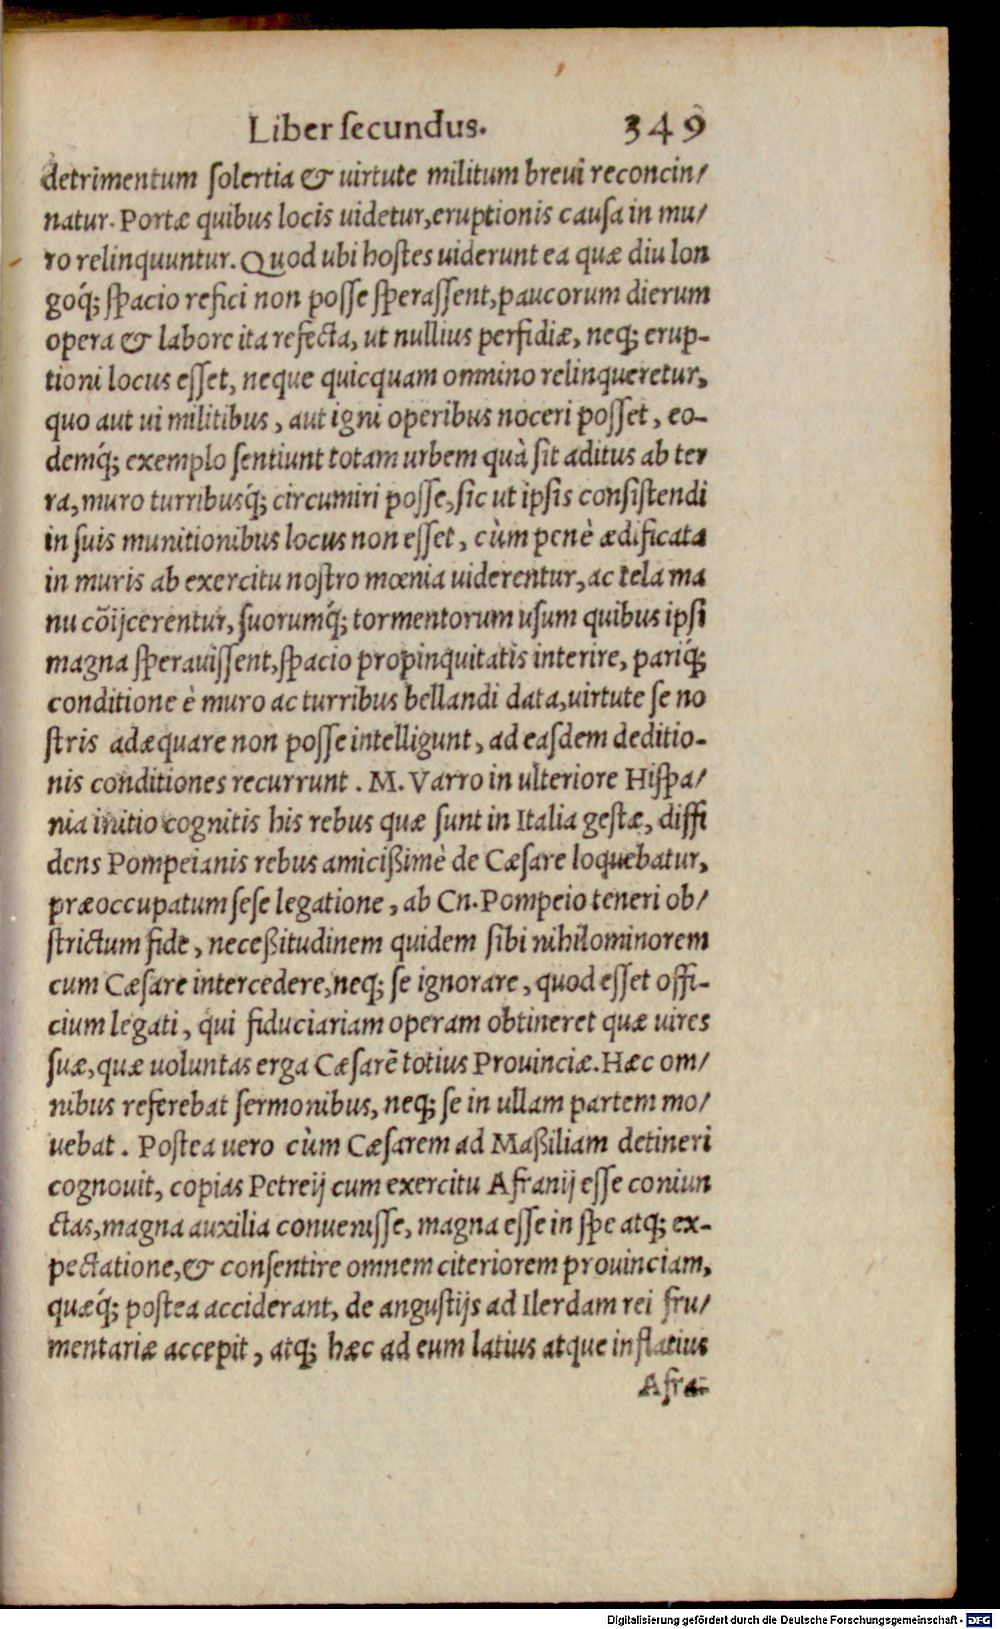 Liber secundus. 349
detrimentum solertia & uirtute militum breui reconcin/
natur. Portæ quibus locis uidetur, eruptionis causa in mu/
ro relinquuntur. Quod ubi hostes uiderunt ea quæ diu lon
goq́; spacio refici non posse sperassent, paucorum dierum
opera & labore ita refecta, ut nullius perfidiæ, neq; erup-
tioni locus esset, neque quicquam omnino relinqueretur,
quo aut ui militibus, aut igni operibus noceri posset, eo-
demq́; exemplo sentiunt totam urbem quà sit aditus ab ter
ra, muro turribusq́; circumiri posse, sic ut ipsis consistendi
in suis munitionibus locus non esset, cùm penè ædificata
in muris ab exercitu nostro mœnia uiderentur, ac tela ma
nu cõijcerentur, suorumq́; tormentorum usum quibus ipsi
magna sperauissent, spacio propinquitatis interire, pariq́;
conditione è muro ac turribus bellandi data, uirtute se no
stris adæquare non posse intelligunt, ad easdem deditio-
nis conditiones recurrunt. M. Varro in ulteriore Hispa/
nia initio cognitis his rebus quæ sunt in Italia gestæ, diffi
dens Pompeianis rebus amicißimè de Cæsare loquebatur,
præoccupatum sese legatione, ab Cn. Pompeio teneri ob/
strictum fide, neceßitudinem quidem sibi nihilominorem
cum Cæsare intercedere, neq; se ignorare, quod esset offi-
cium legati, qui fiduciariam operam obtineret quæ uires
suæ, quæ uoluntas erga Cæsarẽ totius Prouinciæ. Hæc om/
nibus referebat sermonibus, neq; se in ullam partem mo/
uebat. Postea uero cùm Cæsarem ad Maßiliam detineri
cognouit, copias Petreij cum exercitu Afranij esse coniun
ctas, magna auxilia conuenisse, magna esse in spe atq; ex-
pectatione, & consentire omnem citeriorem prouinciam,
quæq́; postea acciderant, de angustijs ad Ilerdam rei fru/
mentariæ accepit, atq; hæc ad eum latius atque inflatius
Afra-
Digitalisierung gefördert durch die Deutsche Forschungsgemeinschaft - DFG